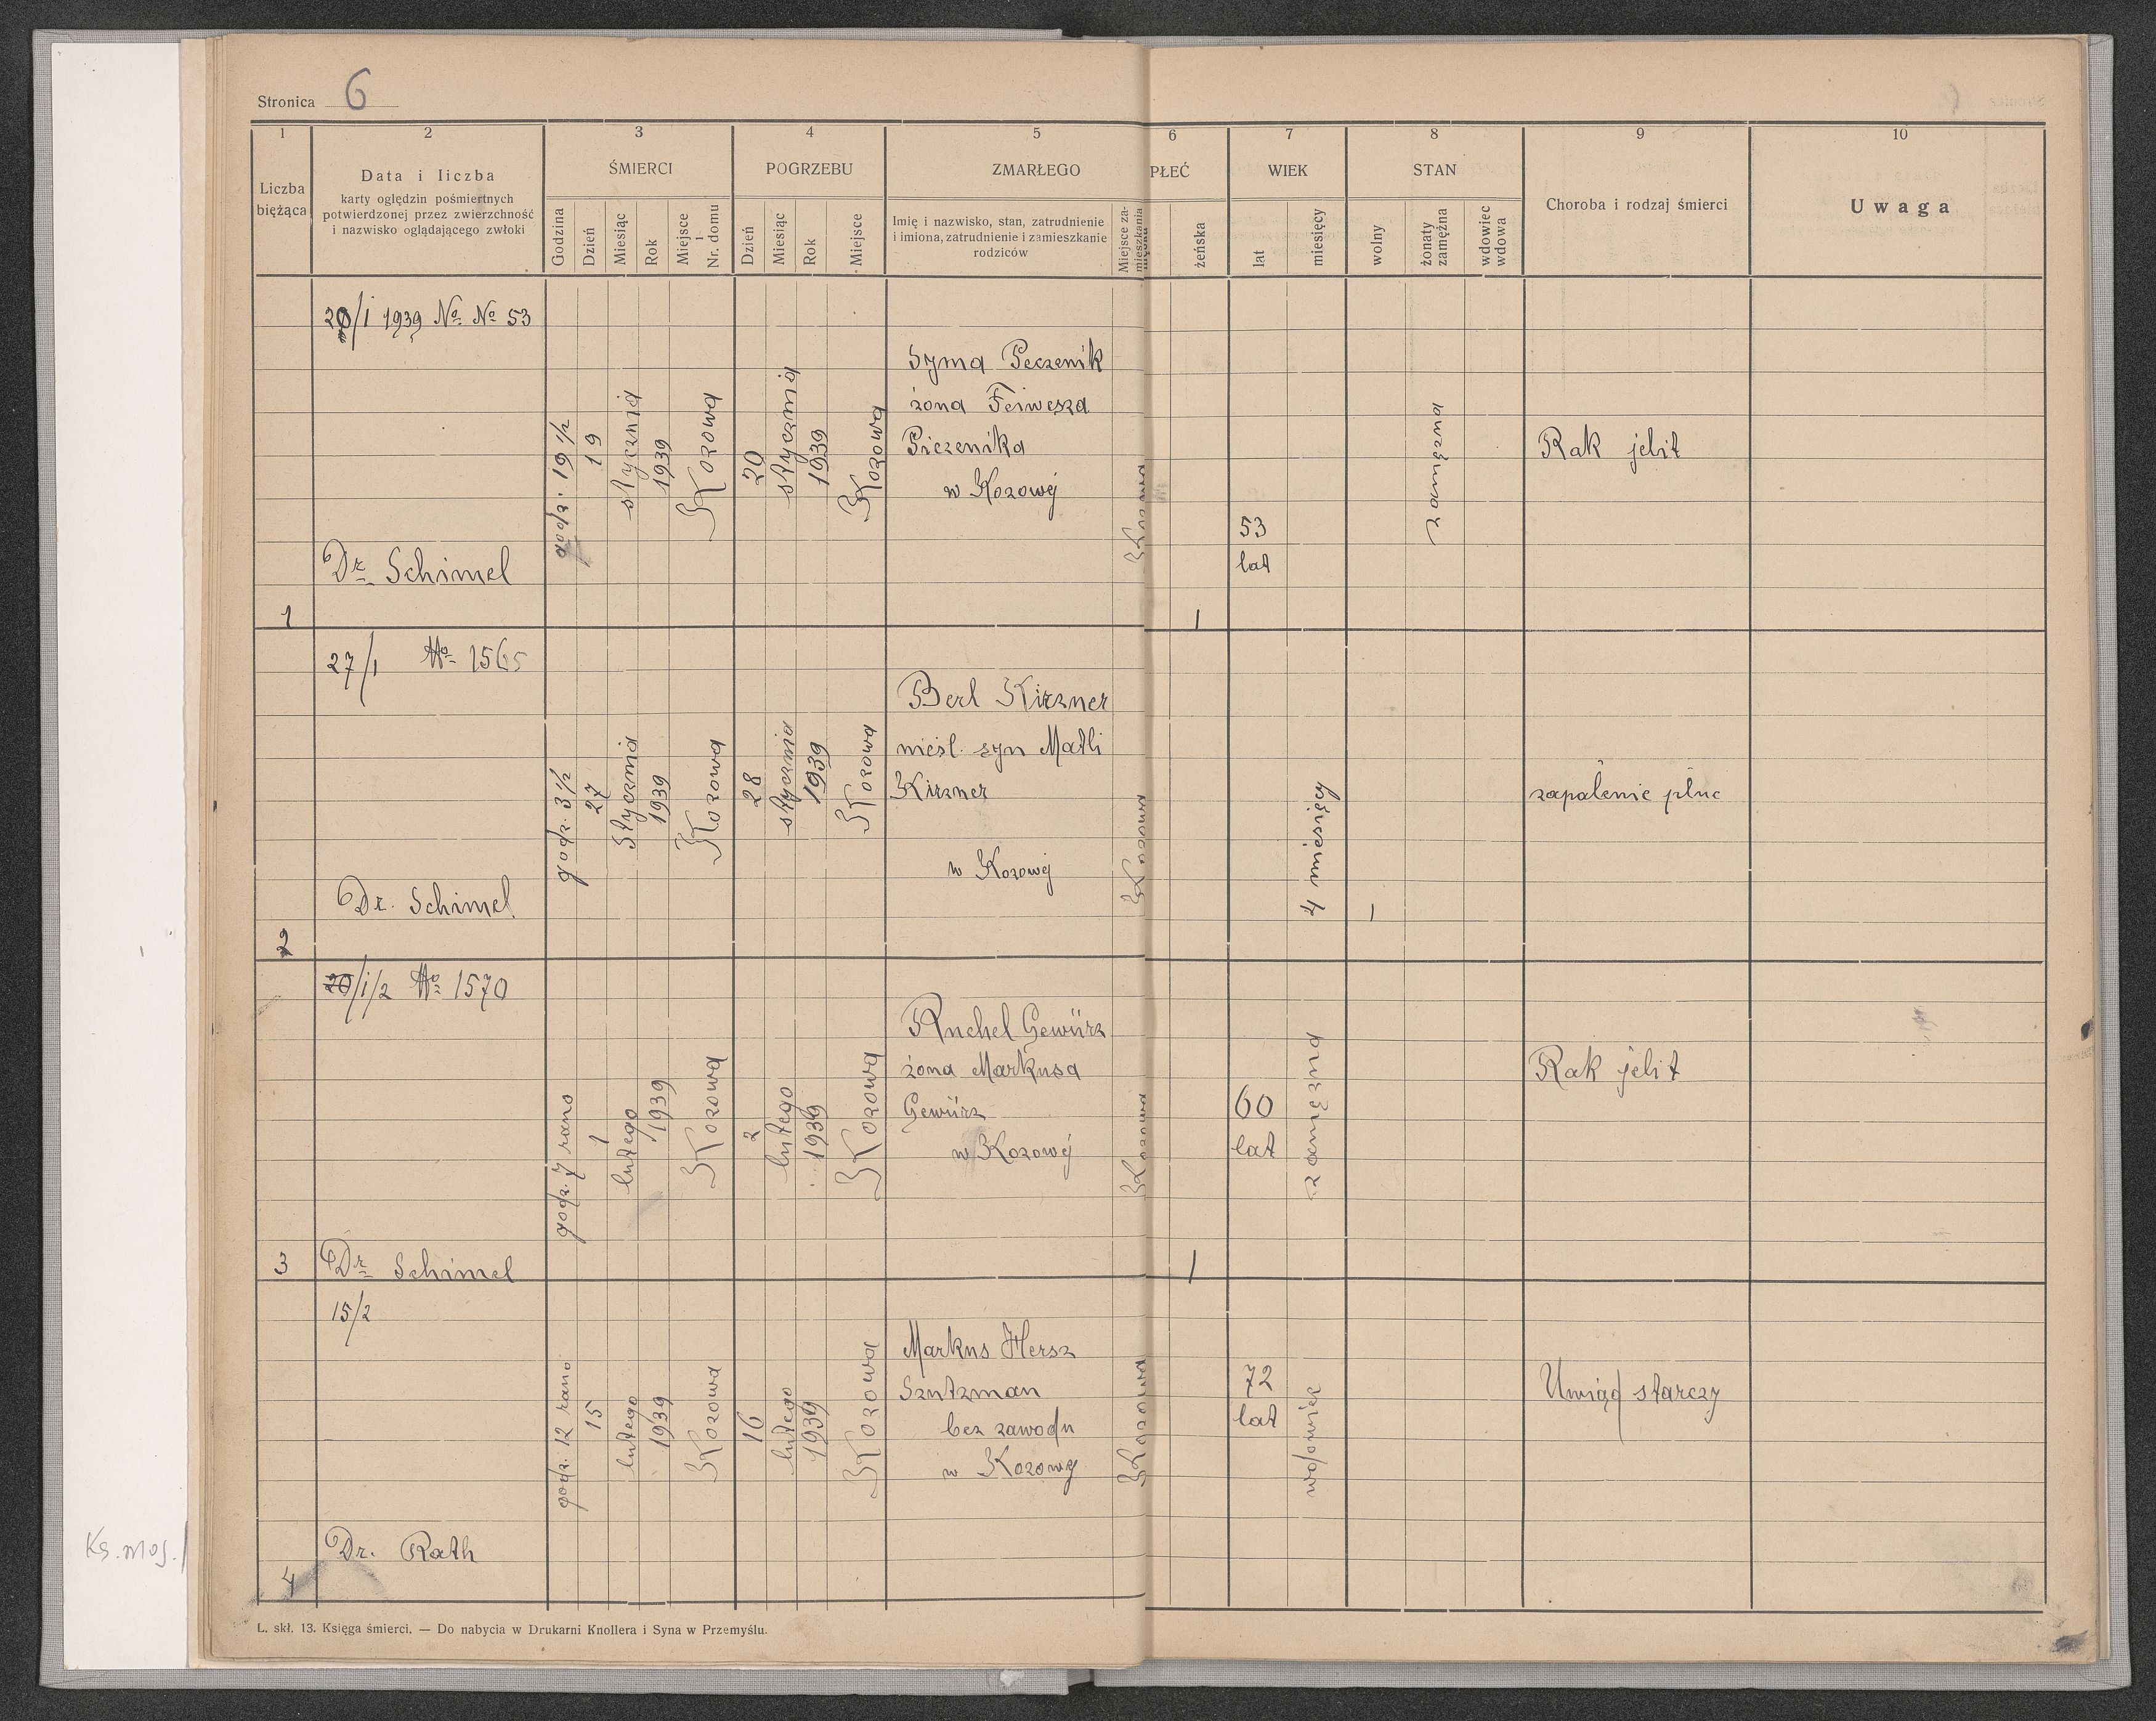 Stronica 6
1 2 3 4 5 6 7 8 9 10
Liczba bieżąca
Data i liczba
karty oględzin pośmiertnych
potwierdzonej przez zwierzchność
i nazwisko oglądającego zwłoki
ŚMIERCI
Godzina
Dzień
Miesiąc
Rok
Miejsce i Nr. domu
POGRZEBU
Dzień
Miesiąc
Rok
Miejsce
ZMARŁEGO
Imię i nazwisko, stan, zatrudnienie
i imiona, zatrudnienie i zamieszkanie
rodziców
Miejsce zamieszkania
PŁEĆ
żeńska
WIEK
lat
miesięcy
STAN
wolny
żonaty zamężna
wdowiec wdowa
Choroba i rodzaj śmierci
Uwaga
20/I 1939 No No 53
Dr Schimel
1
godz. 19 1/2
19
stycznia
1939
Kozowa
20
stycznia
1939
Kozowa
Syma Peczenik
żona Feiwesza
Piczenika
w Kozowej
Kozowa
1
53
lat
zamężna
Rak jelit
27/1 No 1565
Dr. Schimel
2
godz. 3 1/2
27
Stycznia
1939
Kozowa
28
stycznia
1939
Kozowa
Berl Kirzner
nieśl. syn Matli
Kirzner
w Kozowej
Kozowa
4 miesięcy
1
zapalenie płuc
20/1/2 No 1570
Dr Schimel
3
godz. 7 rano
1
lutego
1939
Kozowa
2
lutego
1939
Kozowa
Ruchel Gewürz
żona Markusa
Gewürz
w Kozowej
Kozowa
1
60
lat
zamężna
Rak jelit
15/2
Dr. Rath
4
godz. 12 rano
15
lutego
1939
Kozowa
16
lutego
1939
Kozowa
Markus Hersz
Szutzman
bez zawodu
w Kozowej
Kozowa
72
lat
wdowiec
Uwiąd starczy
L. skł. 13. Księga śmierci. — Do nabycia w Drukarni Knollera i Syna w Przemyślu.
Ks. moj.